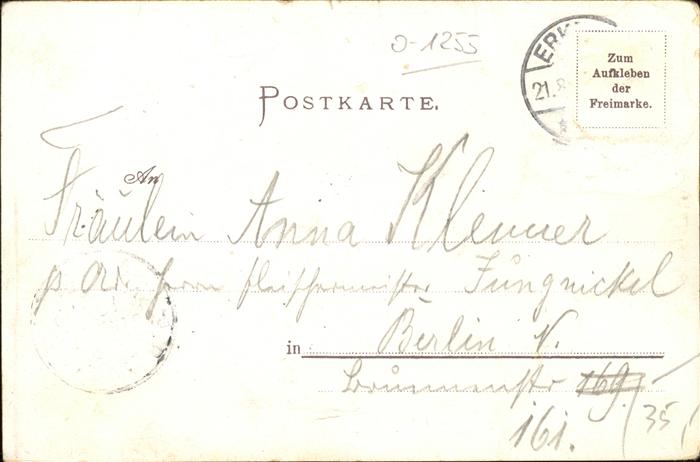 0-1255
ERK
21. 8
Zum
Aufkleben
der
Freimarke.
POSTKARTE.
An
Fräulein Anna Klemmer
p Adr. Herrn Fleischermeister Jungnickel
in Berlin N.
Brunnenstr 169.
161.
(35)